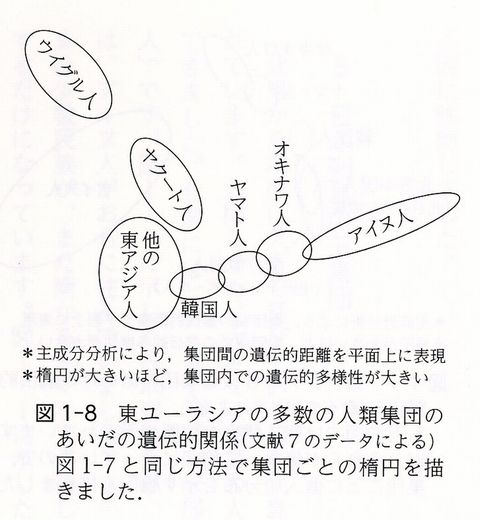 ウイグル人
ヤクート人
オキナワ人
ヤマト人
アイヌ人
他の
東アジア人
韓国人
*主成分分析により，集団間の遺伝的距離を平面上に表現
*楕円が大きいほど，集団内での遺伝的多様性が大きい
図1-8 東ユーラシアの多数の人類集団の
あいだの遺伝的関係(文献7のデータによる)
図1-7と同じ方法で集団ごとの楕円を描
きました．